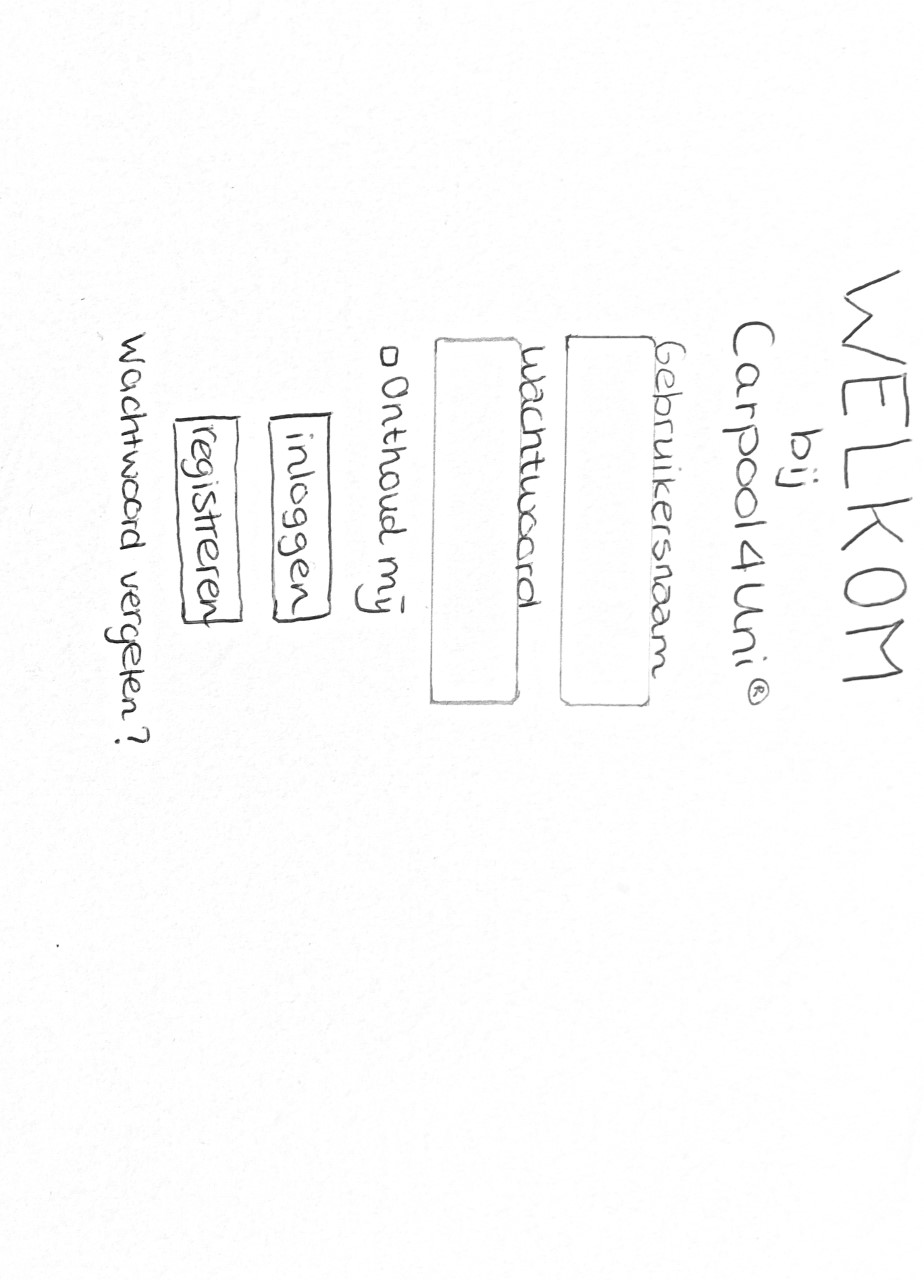 WELKOM
bij
Carpool4Uni®
Gebruikersnaam
Wachtwoord
Onthoud mij
inloggen
registreren
Wachtwoord vergeten?